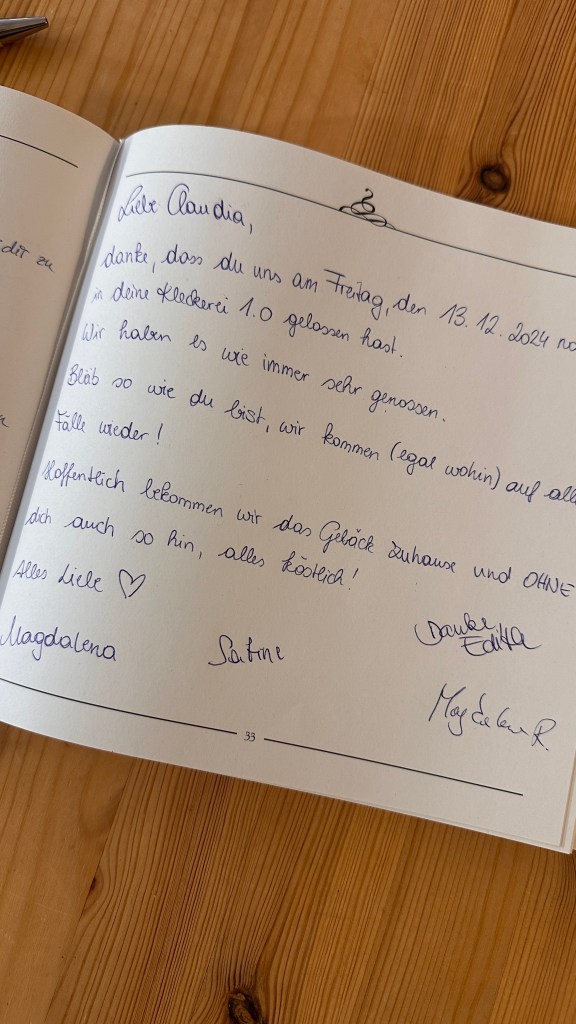 dir zu
Liebe Claudia,
danke, dass du uns am Freitag, den 13.12.2024 no
in deine Kleckerei 1.0 gelassen hast.
Wir haben es wie immer sehr genossen.
Bläb so wie du bist, wir kommen (egal wohin) auf alle
Fälle wieder!
Hoffentlich bekommen wir das Gebäck zuhause und OHNE
dich auch so hin, alles köstlich!
Alles Liebe ♡
Danke
Editha
Magdalena Sabine
Magdalena R.
33